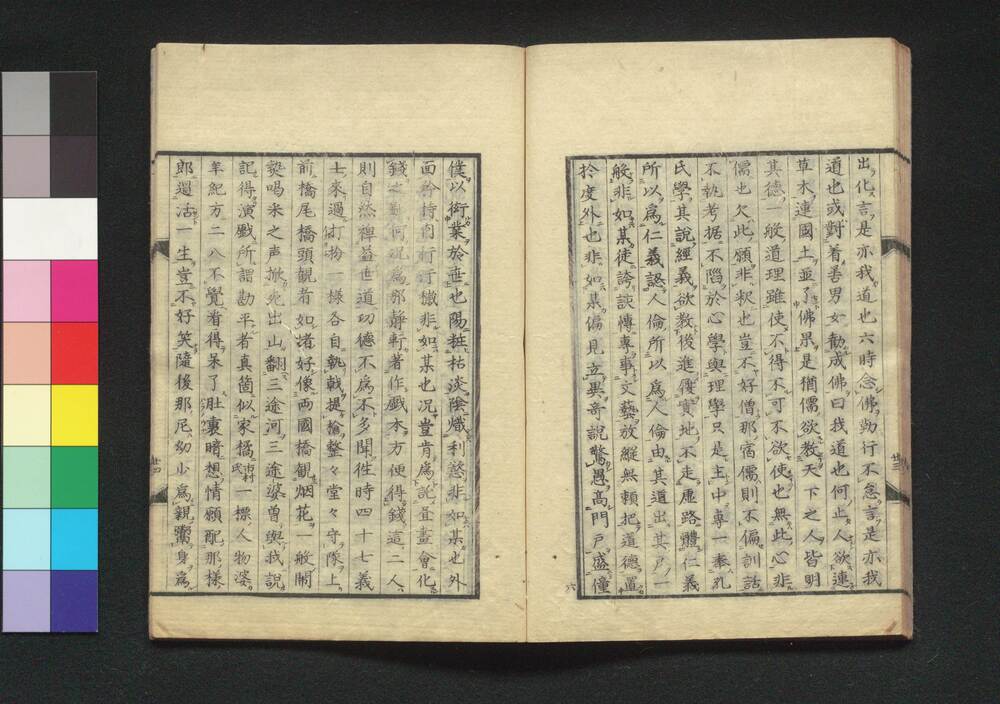 出化言是亦我道也六時念佛勤行不怠言是亦我
道也或對着善男女勸成佛曰我道也何止人欲連
草木連國土並了佛果是猶儒欲教天下之人皆明
其德一般道理雖使不得不可不欲使也無此心非
儒也欠此願非釈也豈不好僧那宿儒則不偏訓話
不執考据不陷於心學與理學只是主中專一奉孔
氏學其說經義欲教後進履實地不走虛路體仁義
所以爲仁義認人倫所以爲人倫由其道出其戸一
般非如某徒誇談傳專事文藝放縱無頼把道德置
於度外也非如某偏見立異奇說驚愚高門戸盛僮
僕以衒業於世也陽粧枯淡陰熾利慾非如某也外
面矜持内行汙穢非如某也况豈肯爲詫畫會化
錢之況爲那靜軒著作戲本方便得錢這二人
則自然裨益世道功德不爲不多聞徃時四十七義
士來過打扮一様各自執戟提槍整々堂々守隊上
前橋尾橋頭観者如堵好像両國橋観烟花一般閙
熱喝采之声撤光出山翻三途河三途婆曽與我說
記得演戲所謂勘平者真箇似家橘市村氏一標人物婆
年紀方二八不覺看得呆了肚裏暗想情願配那様
郎還活一生豈不好笑隨後那尼幼少爲親鬻身爲
廿三
廿四